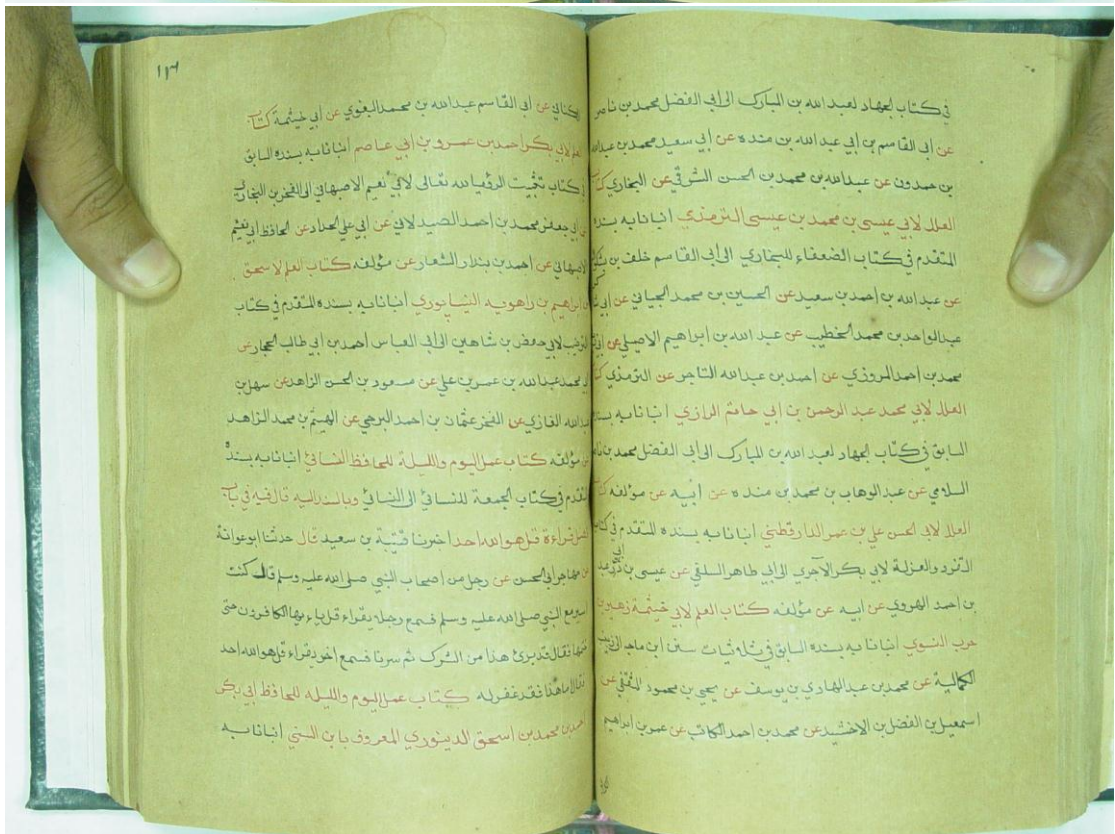 في كتاب الجهاد لعبد الله بن المبارك الى أبي الفضل محمد بن ناصر
عن أبي القاسم بن أبي عبد الله بن منده عن أبي سعيد محمد بن عبد الله
بن حمدون عن عبد الله بن محمد بن الحسن الشرقي عن البخاري كتاب
العلل لابي عيسى بن محمد بن عيسى الترمذي انبانا به بسنده
المتقدم في كتاب الضعفاء للبخاري الى أبي القاسم خلف بن
عن عبد الله بن أحمد بن سعيد عن الحسين بن محمد الجياني عن أبي
عبد الواحد بن محمد الخطيب عن عبد الله بن ابراهيم الاصيلي عن أبي
محمد بن احمد المروزي عن احمد بن عبد الله التاجر عن الترمذي كتاب
العلل لابي محمد عبد الرحمن بن أبي حاتم الرازي انبانا به بسنده
السابق في كتاب الجهاد لعبد الله بن المبارك الى أبي الفضل محمد بن ناصر
السلامي عن عبد الوهاب بن محمد بن منده عن أبيه عن مؤلفه كتاب
العلل لابي الحسن علي بن عمر الدارقطني انبانا به بسنده المتقدم في كتاب
التفرد والعزلة لابي بكر الآجري الى أبي طاهر السلفي عن عيسى بن أبي ذر عبد
بن احمد الهروي عن ابيه عن مؤلفه كتاب العلم لابي خيثمة زهير بن
حرب النسوي انبانا به بسنده السابق في ثلاثيات سنن ابن ماجه الى زينب
الكمالية عن محمد بن عبد الهادي بن يوسف عن يحيى بن محمود الثقفي عن
اسمعيل بن الفضل بن الاخشيد عن محمد بن احمد الكاتب عن عمر بن ابراهيم
١٣٦
الكتاني عن أبي القاسم عبد الله بن محمد البغوي عن أبي خيثمة كتاب
العلم لابي بكر احمد بن عمرو بن أبي عاصم انبانا به بسنده السابق
في كتاب تثبيت الرؤيا لله تعالى لابي نعيم الاصبهاني الى الفخر بن البخاري
عن أبي جعفر محمد بن احمد الصيدلاني عن أبي علي الحداد عن الحافظ أبي نعيم
الاصبهاني عن احمد بن بندار الشعار عن مؤلفه كتاب العلم لاسحق
بن ابراهيم بن راهويه النيسابوري انبانا به بسنده المتقدم في كتاب
الترغيب لابي حفص بن شاهين الى أبي العباس أحمد بن أبي طالب الحجار عن
أبي محمد عبد الله بن عمر بن علي عن مسعود بن الحسن الزاهد عن سهل بن
عبد الله الغازي عن الفخر عثمان بن أحمد البرجي عن الهيثم بن محمد الزاهد
عن مؤلفه كتاب عمل اليوم والليلة للحافظ النسائي انبانا به بسنده
المتقدم في كتاب الجمعة للنسائي الى النسائي وبالسند اليه قال فيه في باب
فضل قراءة قل هو الله احد اخبرنا قتيبة بن سعيد قال حدثنا ابو عوانة
عن مهاجر أبي الحسن عن رجل من أصحاب النبي صلى الله عليه وسلم قال كنت
اسير مع النبي صلى الله عليه وسلم فسمع رجلا يقراء قل ياء يها الكافرون حتى
ختمها فقال قد برئ هذا من الشرك ثم سرنا فسمع آخر يقراء قل هو الله احد
فقال اما هذا فقد غفر له كتاب عمل اليوم والليله للحافظ أبي بكر
أحمد بن محمد بن اسحق الدينوري المعروف بابن السني انبانا به